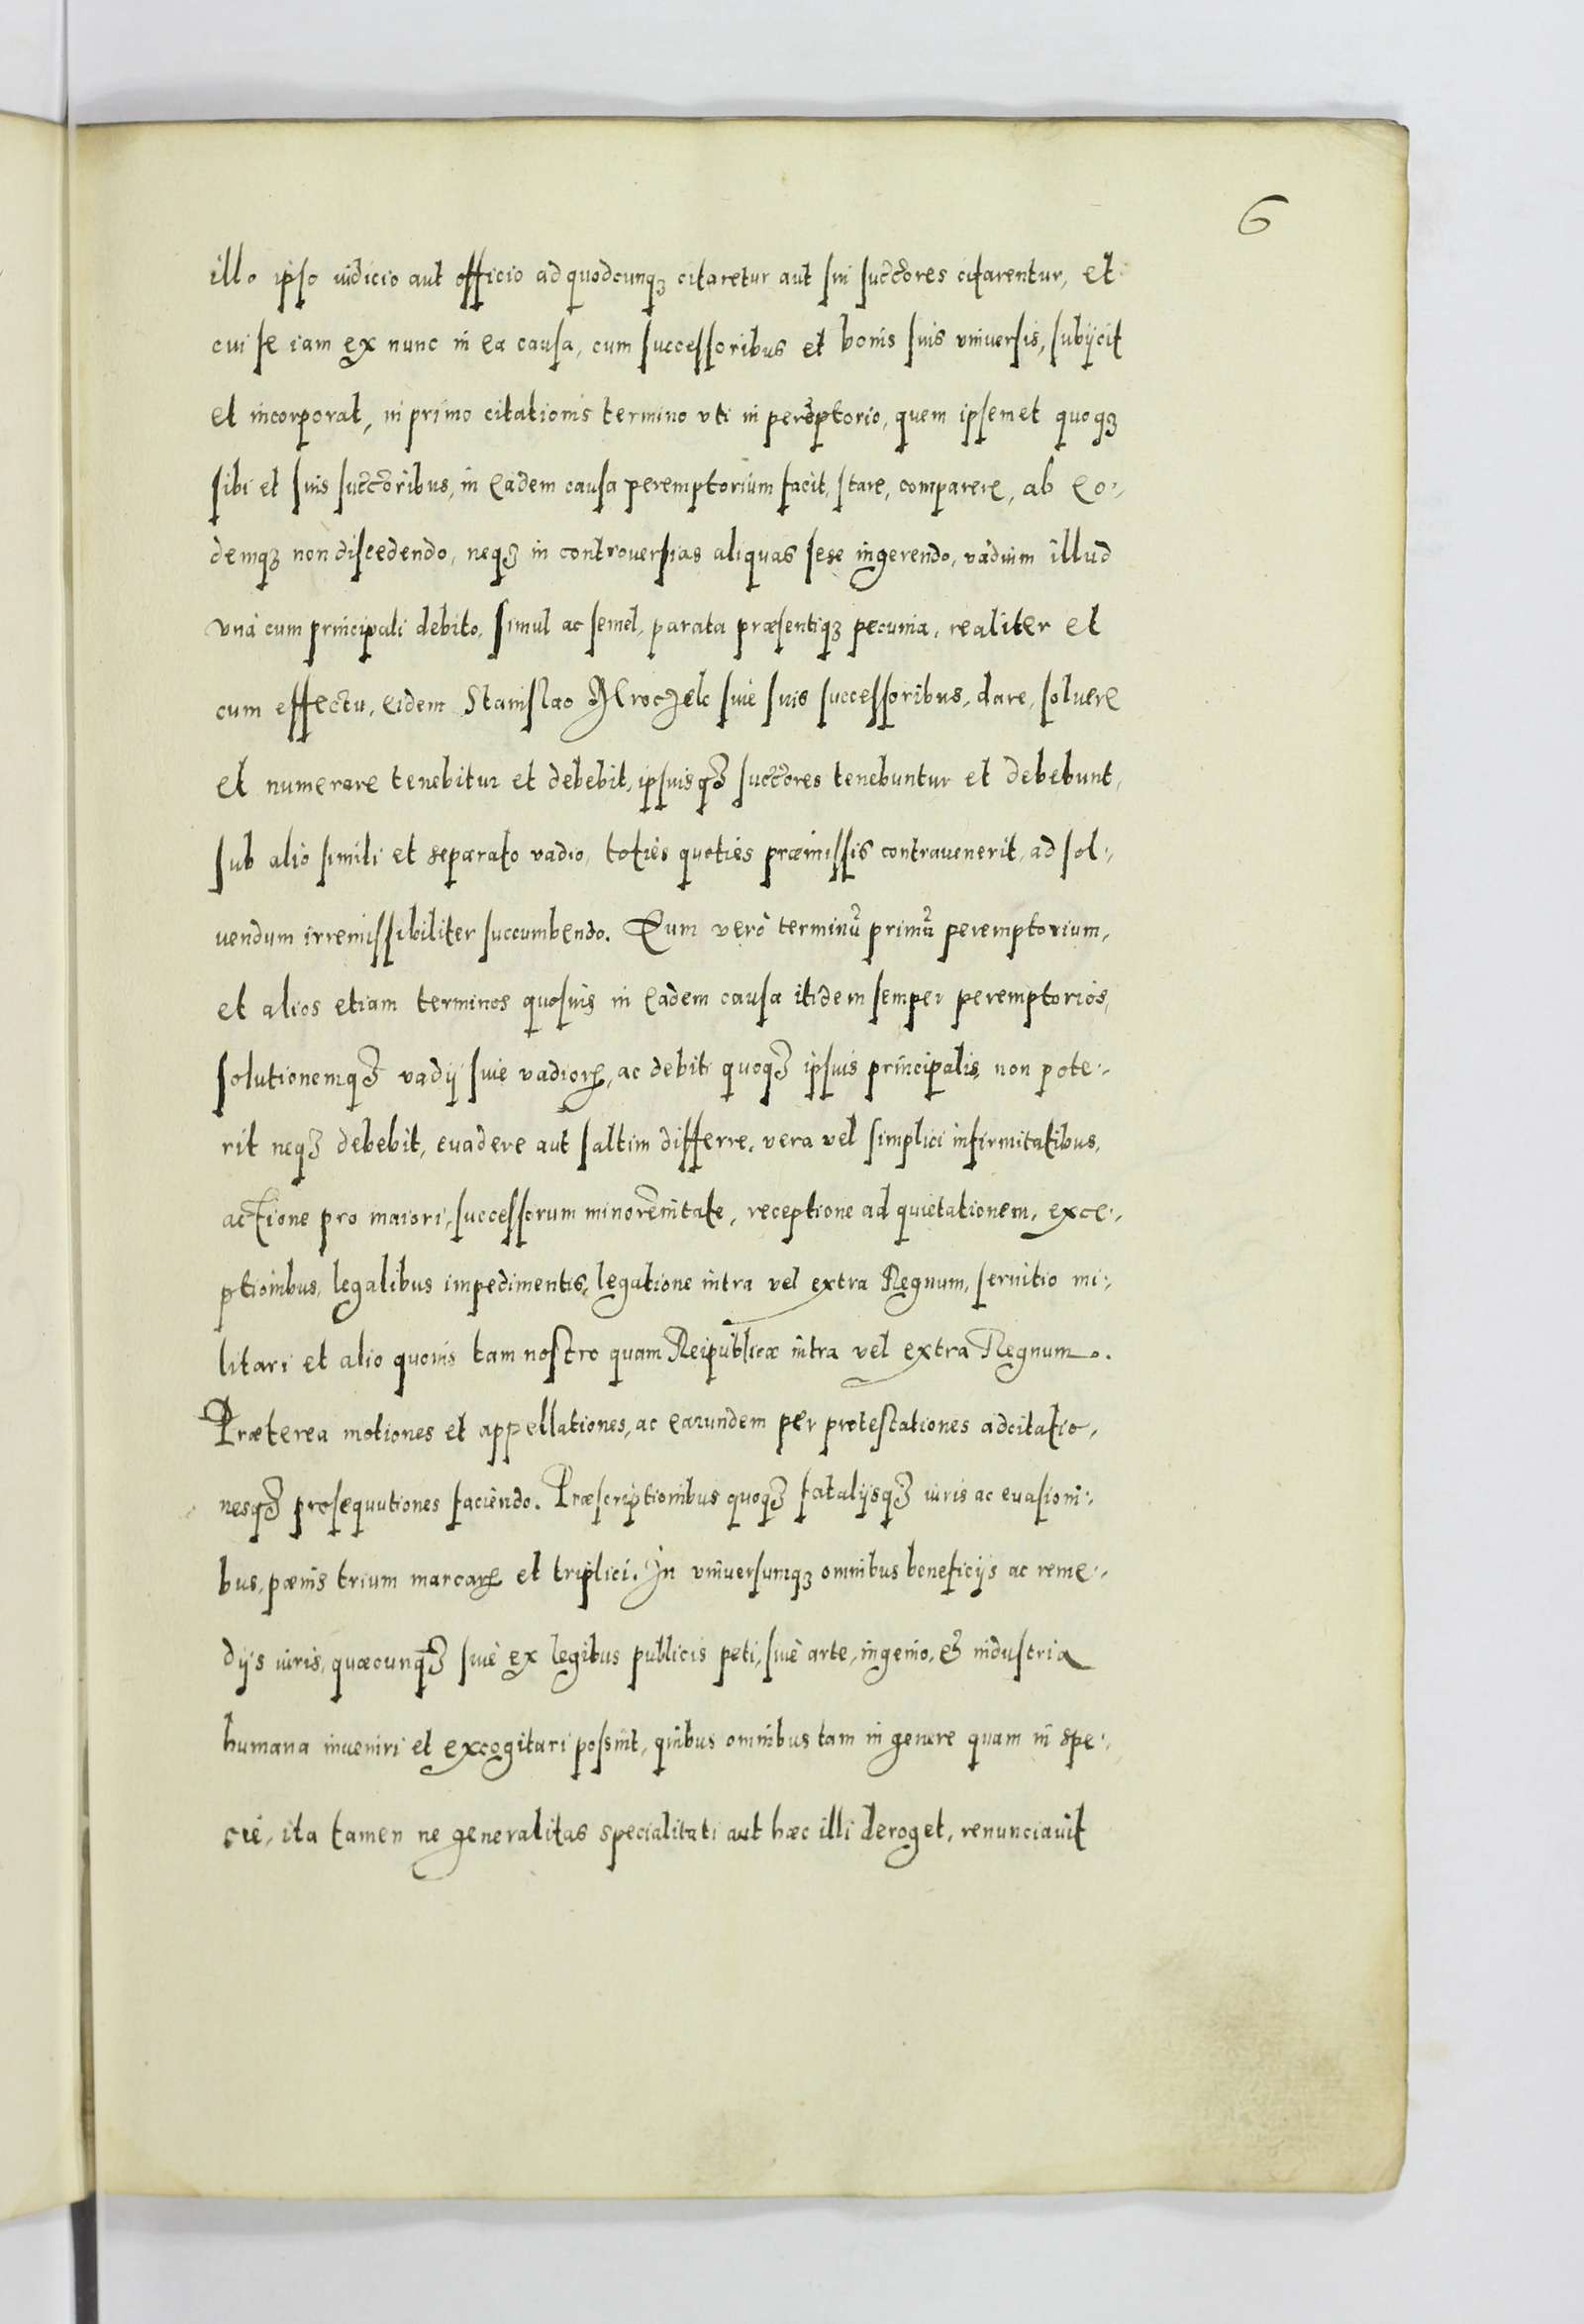 6
illo ipso iudicio aut officio ad quodcunqꝫ citaretur aut sui succ̃ores citarentur, et
cui se iam ex nunc in ea causa, cum successoribus et bonis suis vniuersis, subijcit
et incorporat, in primo citationis termino vti in perẽptorio, quem ipsemet quoqꝫ
sibi et suis succ̃oribus, in eadem causa peremptorium facit, stare, comparere, ab eo-
demqꝫ non discedendo, neqꝫ in controuersias aliquas sese ingerendo, vadium illud
vna cum principali debito, simul ac semel, parata præsentiqꝫ pecunia, realiter et
cum effectu, eidem Stanislao siue suis successoribus, dare, soluere
et numerare tenebitur et debebit, ipsiusqꝫ succ̃ores tenebuntur et debebunt,
sub alio simili et separato vadio, toties quoties præmissis contrauenerit, ad sol-
uendum irremissibiliter succumbendo. Eum verò terminũ primũ peremptorium,
et alios etiam terminos quosuis in eadem causa itidem semper peremptorios,
solutionemqꝫ vadij siue vadioꝝ, ac debiti quoqꝫ ipsius principalis, non pote-
rit neqꝫ debebit, euadere aut saltim differre, vera vel simplici infirmitatibus,
actione pro maiori, successorum minorẽnitate, receptione ad quietationem, exce-
ptionibus, legalibus impedimentis, legatione intra vel extra Regnum, seruitio mi-
litari et alio quouis tam nostro quam Reipublicæ intra vel extra Regnum.
Præterea motiones et appellationes, ac earundem per protestationes adcitatio-
nesqꝫ prosequutiones faciendo. Præscriptionibus quoqꝫ fatalijsqꝫ iuris ac euasioni-
bus, pœnis trium marcaꝝ et triplici. In vniuersumqꝫ omnibus beneficijs ac reme-
dijs iuris, quæcunqꝫ siuè ex legibus publicis peti, siuè arte, ingenio, & industria
humana inueniri et excogitari possint, quibus omnibus tam in genere quam in spe-
cie, ita tamen ne generalitas specialitati aut hæc illi deroget, renunciauit